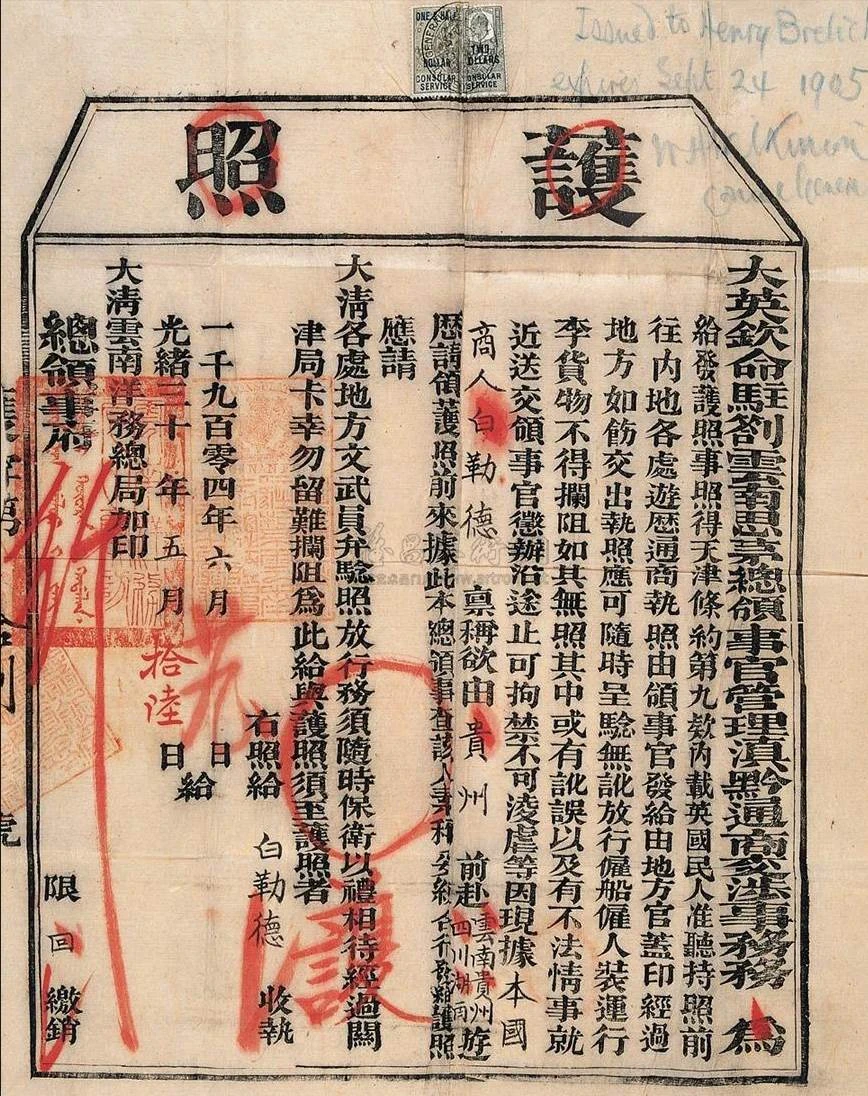 Issued to Henry
expires Sept 24 1905
ONE & HALF
DOLLAR
CONSULAR
SERVICE
TWO
DOLLARS
CONSULAR
SERVICE
護照
大英欽命駐劄雲南思茅總領事官管理滇黔通商交涉事務 為
給發護照事照得天津條約第九欵內載英國民人准聽持照前
往內地各處遊歷通商執照由領事官發給由地方官蓋印經過
地方如飭交出執照應可隨時呈驗無訛放行僱船僱人裝運行
李貨物不得攔阻如其無照其中或有訛誤以及有不法情事就
近送交領事官懲辦沿途止可拘禁不可凌虐等因現據本國
商人白勒德 稟稱欲由貴州 前赴雲南貴州四川湖南遊
歷請領護照前來據此本總領事查該人 護照
應請
大清各處地方文武員弁驗照放行務須隨時保衛以禮相待經過關
津局卡幸勿留難攔阻為此給與護照須至護照者
右照給 白勒德 收執
一千九百零四年六月 日
光緒三十年五月拾陸日給
大清雲南洋務總局加印
總領事府
限回繳銷
護
號